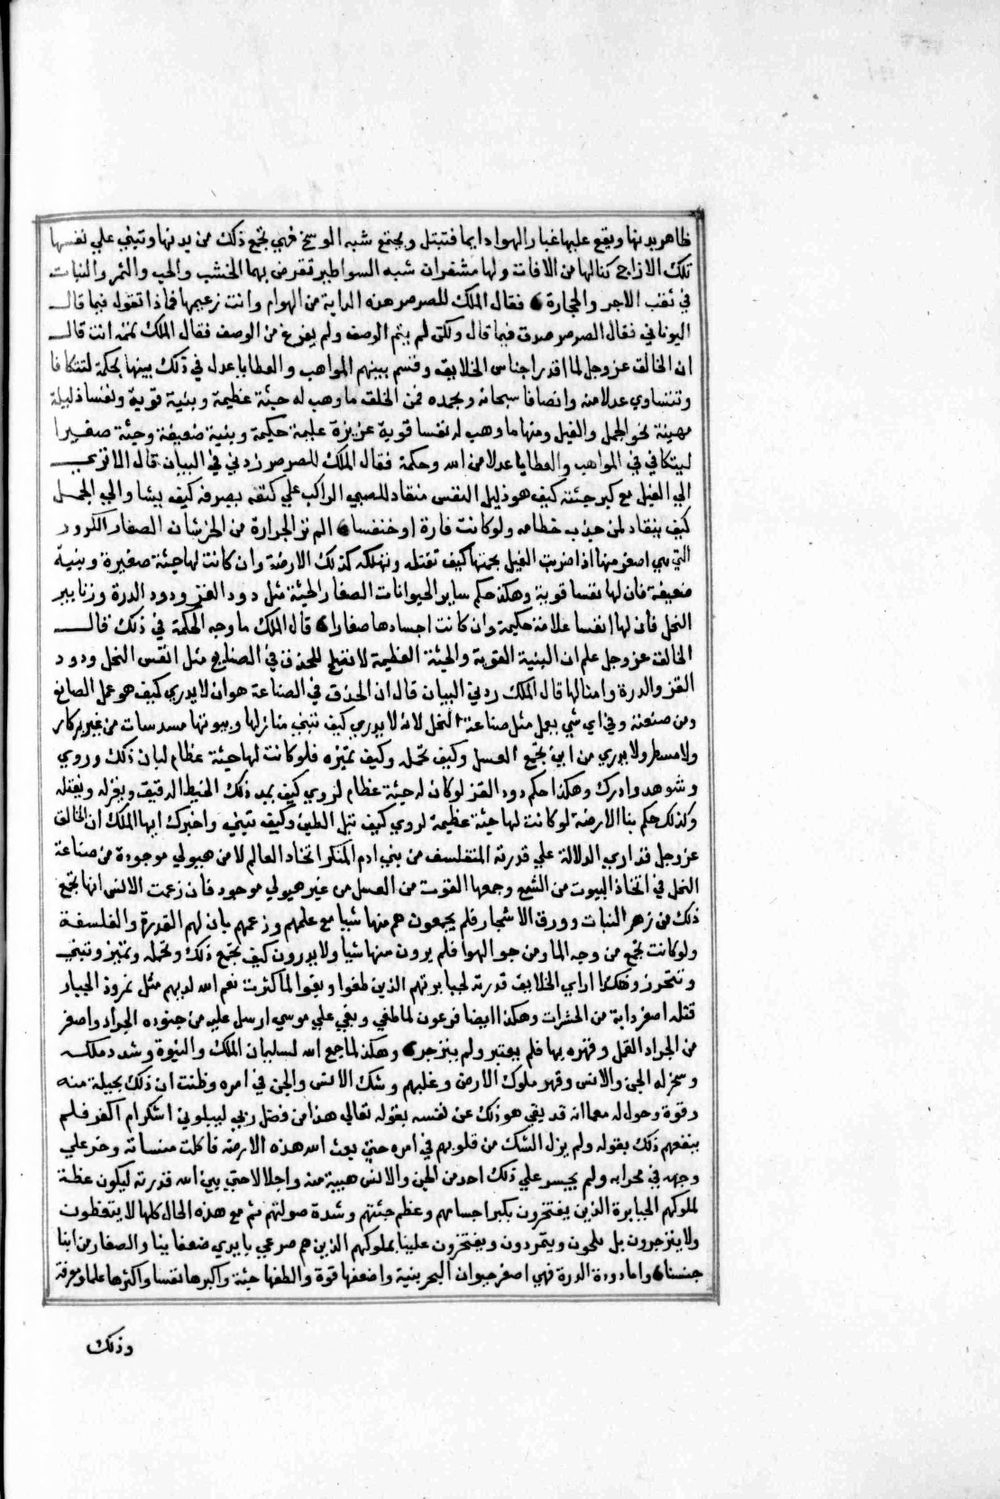 ظاهر بدنها ويقع عليها غبار الهوا دايما فتبتل ويجتمع شبه الوسخ فهي تجمع ذلك من بدنها وتبني علي نفسها
تلك الازاج كنا لها من الافات ولها مشفران شبه السواطير تقرض بهما الخشب والحب والثمر والنبات
في ثقب الاجر والحجارة فقال الملك للصرصر هذه الدابة من الهوام وانت زعيمها فماذا تقوله فيما قال
اليوناني فقال الصرصر صدق فيما قال ولكن لم يتم الوصف ولم يفرغ من الوصف فقال الملك تمه انت قال
ان الخالق عز وجل لما قدر اجناس الخلايق وقسم بينهم المواهب والعطايا عدل في ذلك بينها بحكمة لتتكافا
وتتساوي عدلا منه وانصافا سبحانه وبحمده فمن الخلق ما وهب له جثة عظيمة وبنية قوية ونفسا ذليلة
مهينة نحو الجمل والفيل ومنها ما وهب له نفسا قوية عزيزة عليمة حكيمة وبنية ضعيفة وجثة صغيرا
ليتكافي في المواهب والعطايا عدلا من الله وحكمة فقال الملك للصرصر زدني في البيان قال الا تري
الي الفيل مع كبر جثته كيف هو ذليل النفس منقاد للصبي الراكب علي كتفه يصرفه كيف يشا والي الجمل
كيف ينقاد لمن جذب خطامه ولو كانت فارة او خنفسا الم تر الجرارة من الخرشان الصغار الكرور
التي هي اصغر منها اذا ضربت الفيل بحمتها كيف تقتله وتهلكه كذلك الارضة وان كانت لها جثة صغيرة وبنية
ضعيفة فان لها نفسا قوية وهكذا حكم ساير الحيوانات الصغار الجثة مثل دود القز ودود الدرة وزنابير
النحل فان لها انفسا علامة حكيمة وان كانت اجسادها صغارا قال الملك ما وجه الحكمة في ذلك قال
الخالق عز وجل علم ان البنية القوية والجثة العظيمة لا تصلح للحذق في الصنايع مثل انفس النحل ودود
القز والدرة وامثالها قال الملك زدني البيان قال ان الحذق في الصناعة هو ان لا يدري كيف هو عمل الصانع
ومن صنعته وفي اي شي يعمل مثل صناعة النحل لانه لا يدري كيف تبني منازلها وبيوتها مسدسات من غير بركار
ولا مسطر ولا يدري من اين يجتمع العسل وكيف تحمله وكيف تميزه فلو كانت لها جثة عظام لبان ذلك وروي
وشوهد وادرك وهكذا حكم دود القز لو كان له جثة عظام لروي كيف يمد ذلك الخيط الدقيق ويغزله ويفتله
وكذلك حكم بنا الارضة لو كانت لها جثة عظيمة لروي كيف تبل الطين وكيف تبني واخبرك ايها الملك ان الخالق
عز وجل قد اري الدلالة علي قدرته المتفلسف من بني ادم المنكر اتخاذ العالم لا من هيولي موجودة من صناعة
النحل في اتخاذ البيوت من الشمع وجمعها القوت من العسل من غير هيولي موجود فان زعمت الانس انها تجمع
ذلك من زهر النبات وورق الاشجار فلم يجمعون هم منها شيا مع علمهم وزعمهم بان لهم القدرة والفلسفة
ولو كانت تجمع من وجه الما ومن جو الهوا فلم يرون منها شيا ولا يدرون كيف تجمع ذلك وتحمله وتميز وتبني
وتحرز وهكذا اراي الخلايق قدرته لجبابرتهم الذين طغوا وبغوا لما كثرت نعم الله لديهم مثل نمرود الجبار
قتله اصغر دابة من الحشرات وهكذا ايضا فرعون لما طغي وبغي علي موسي ارسل عليه من جنوده الجراد واصغر
من الجراد القمل وقهره بها فلم يعتبر ولم ينزجر وهكذا لما جمع الله لسليمان الملك والنبوة وشدد ملكه
وسخر له الجن والانس وقهر ملوك الارض وغلبهم وشك الانس والجن في امره وظنت ان ذلك بحيلة منه
وقوة وحول له مما انه قد بقي هو ذلك عن نفسه بقوله تعالي هذا من فضل ربي ليبلوني اشكر ام اكفر فلم
ينفعهم ذلك بقوله ولم يزل الشك من قلوبهم في امره حتي بعث الله هذه الارضة فاكلت منساته وخر علي
وجهه في محرابه ولم يجسر علي ذلك احد من الجن والانس هيبة منه واجلالا حتي بين الله قدرته ليكون عظة
لملوكهم الجبابرة الذين يفتخرون بكبر اجسامهم وعظم جثتهم وشدة صولتهم ثم مع هذه الحال كلها لا يتعظون
ولا ينزجرون بل يلحون ويتمردون ويفتخرون علينا بملوكهم الذين هم صرعي بايدي ضعفاينا والصغار من ابنا
جنسنا واما دودة الدرة فهي اصغر حيوان البحر بنية واضعفها قوة والطفها جثة واكبرها نفسا واكثرها علما ومعرفة
وذلك